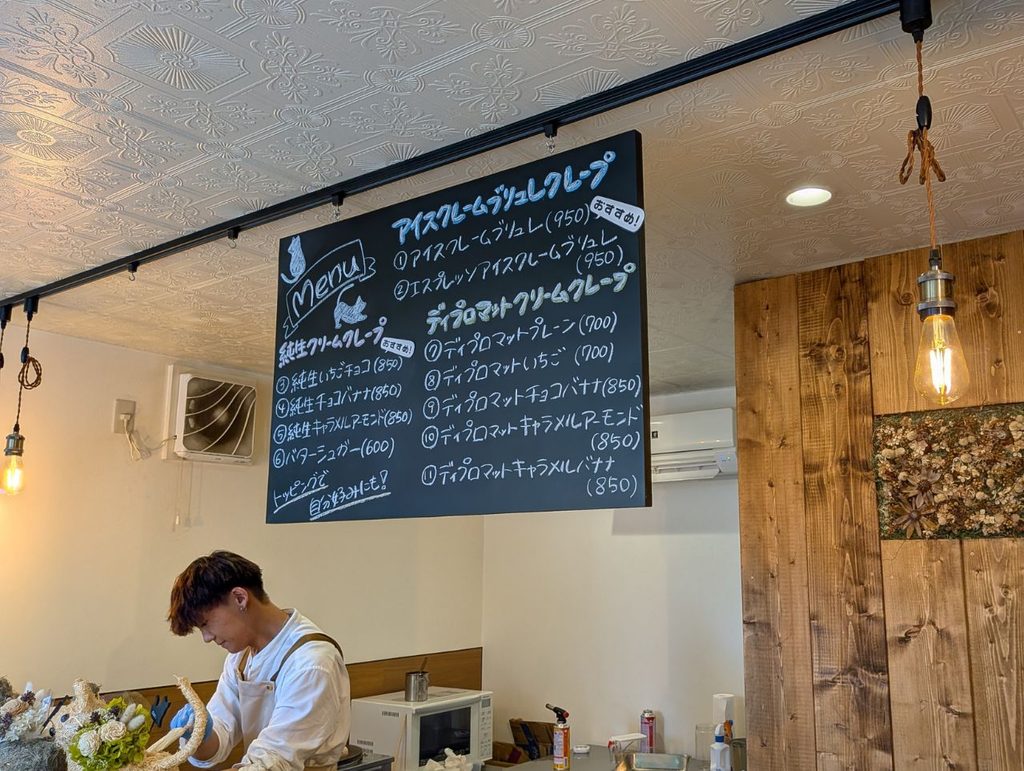 Menu
純生クリームクレープ
おすすめ!
③純生いちごチョコ(850)
④純生チョコバナナ(850)
⑤純生キャラメルアーモンド(850)
⑥バターシュガー(600)
トッピングで
自分好みにも!
アイスクレームブリュレクレープ
おすすめ!
①アイスクレームブリュレ(950)
②エスプレッソアイスクレームブリュレ
(950)
ディプロマットクリームクレープ
⑦ディプロマットプレーン(700)
⑧ディプロマットいちご(700)
⑨ディプロマットチョコバナナ(850)
⑩ディプロマットキャラメルアーモンド
(850)
⑪ディプロマットキャラメルバナナ
(850)